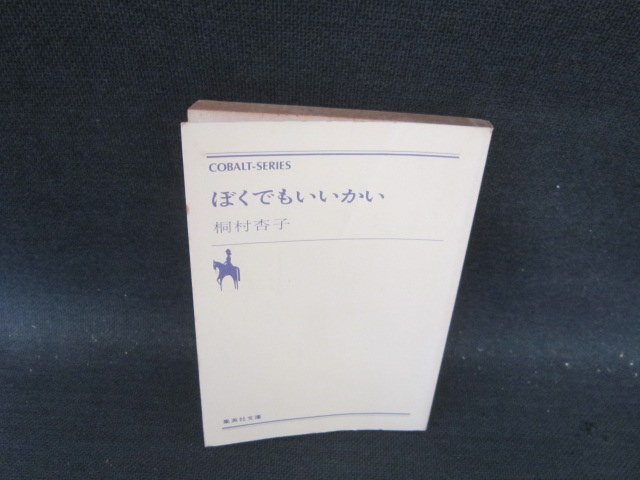 COBALT-SERIES
ぼくでもいいかい
桐村杏子
集英社文庫